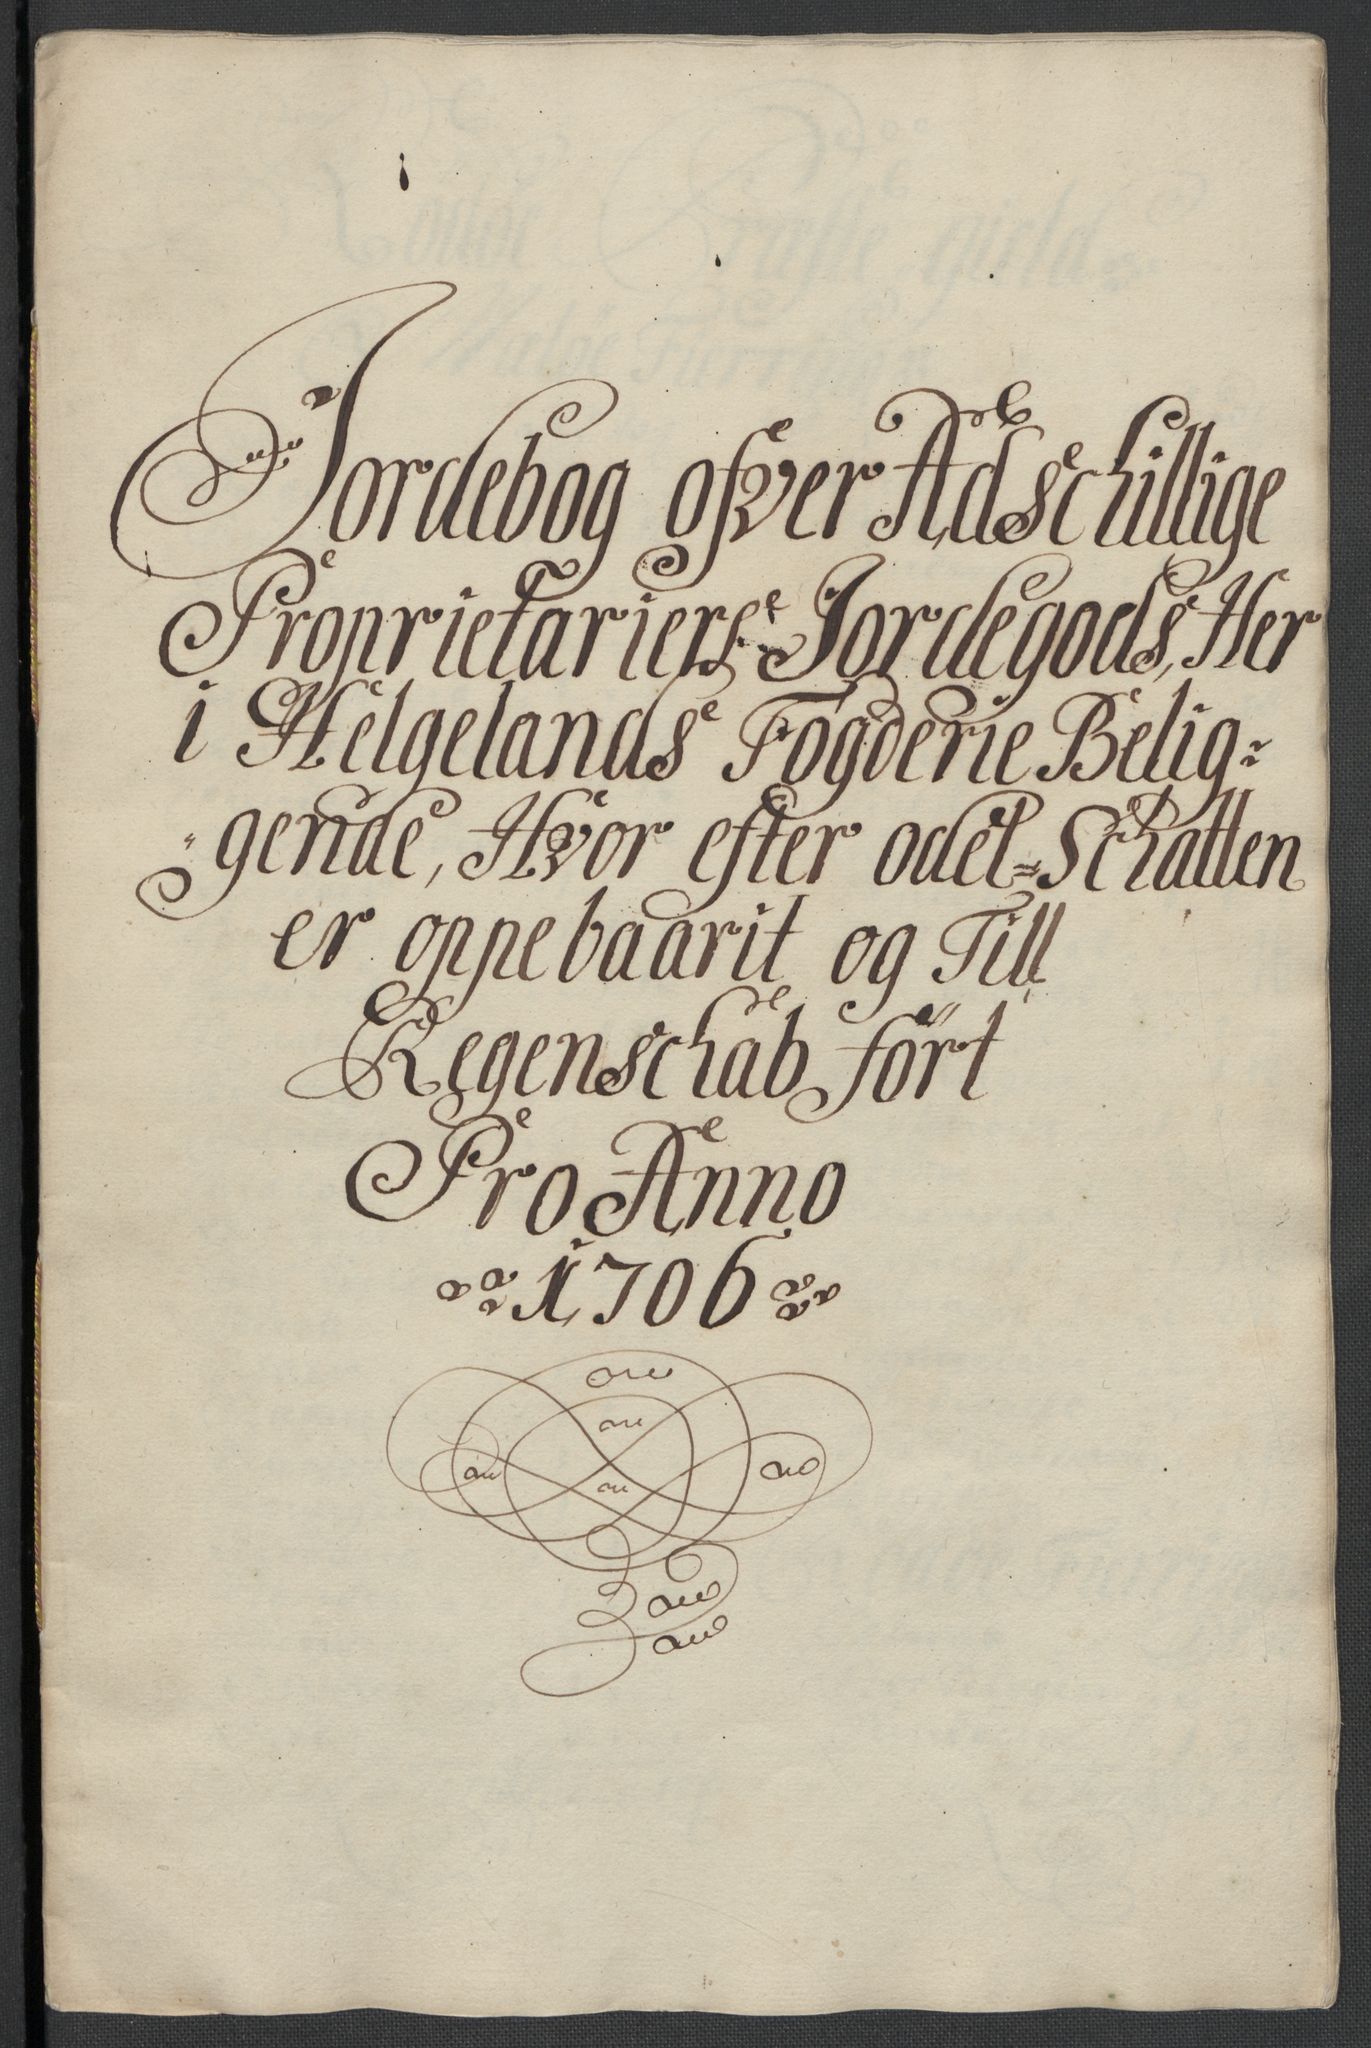 Jordebog ofver Adschillige
Proprietariers Jordegods, Her
i Helgelands Fogderie Belig=
gende, Hvor efter odel=Schatten
er oppebaarit og Till
Regenschab fört
Pro Anno
1706